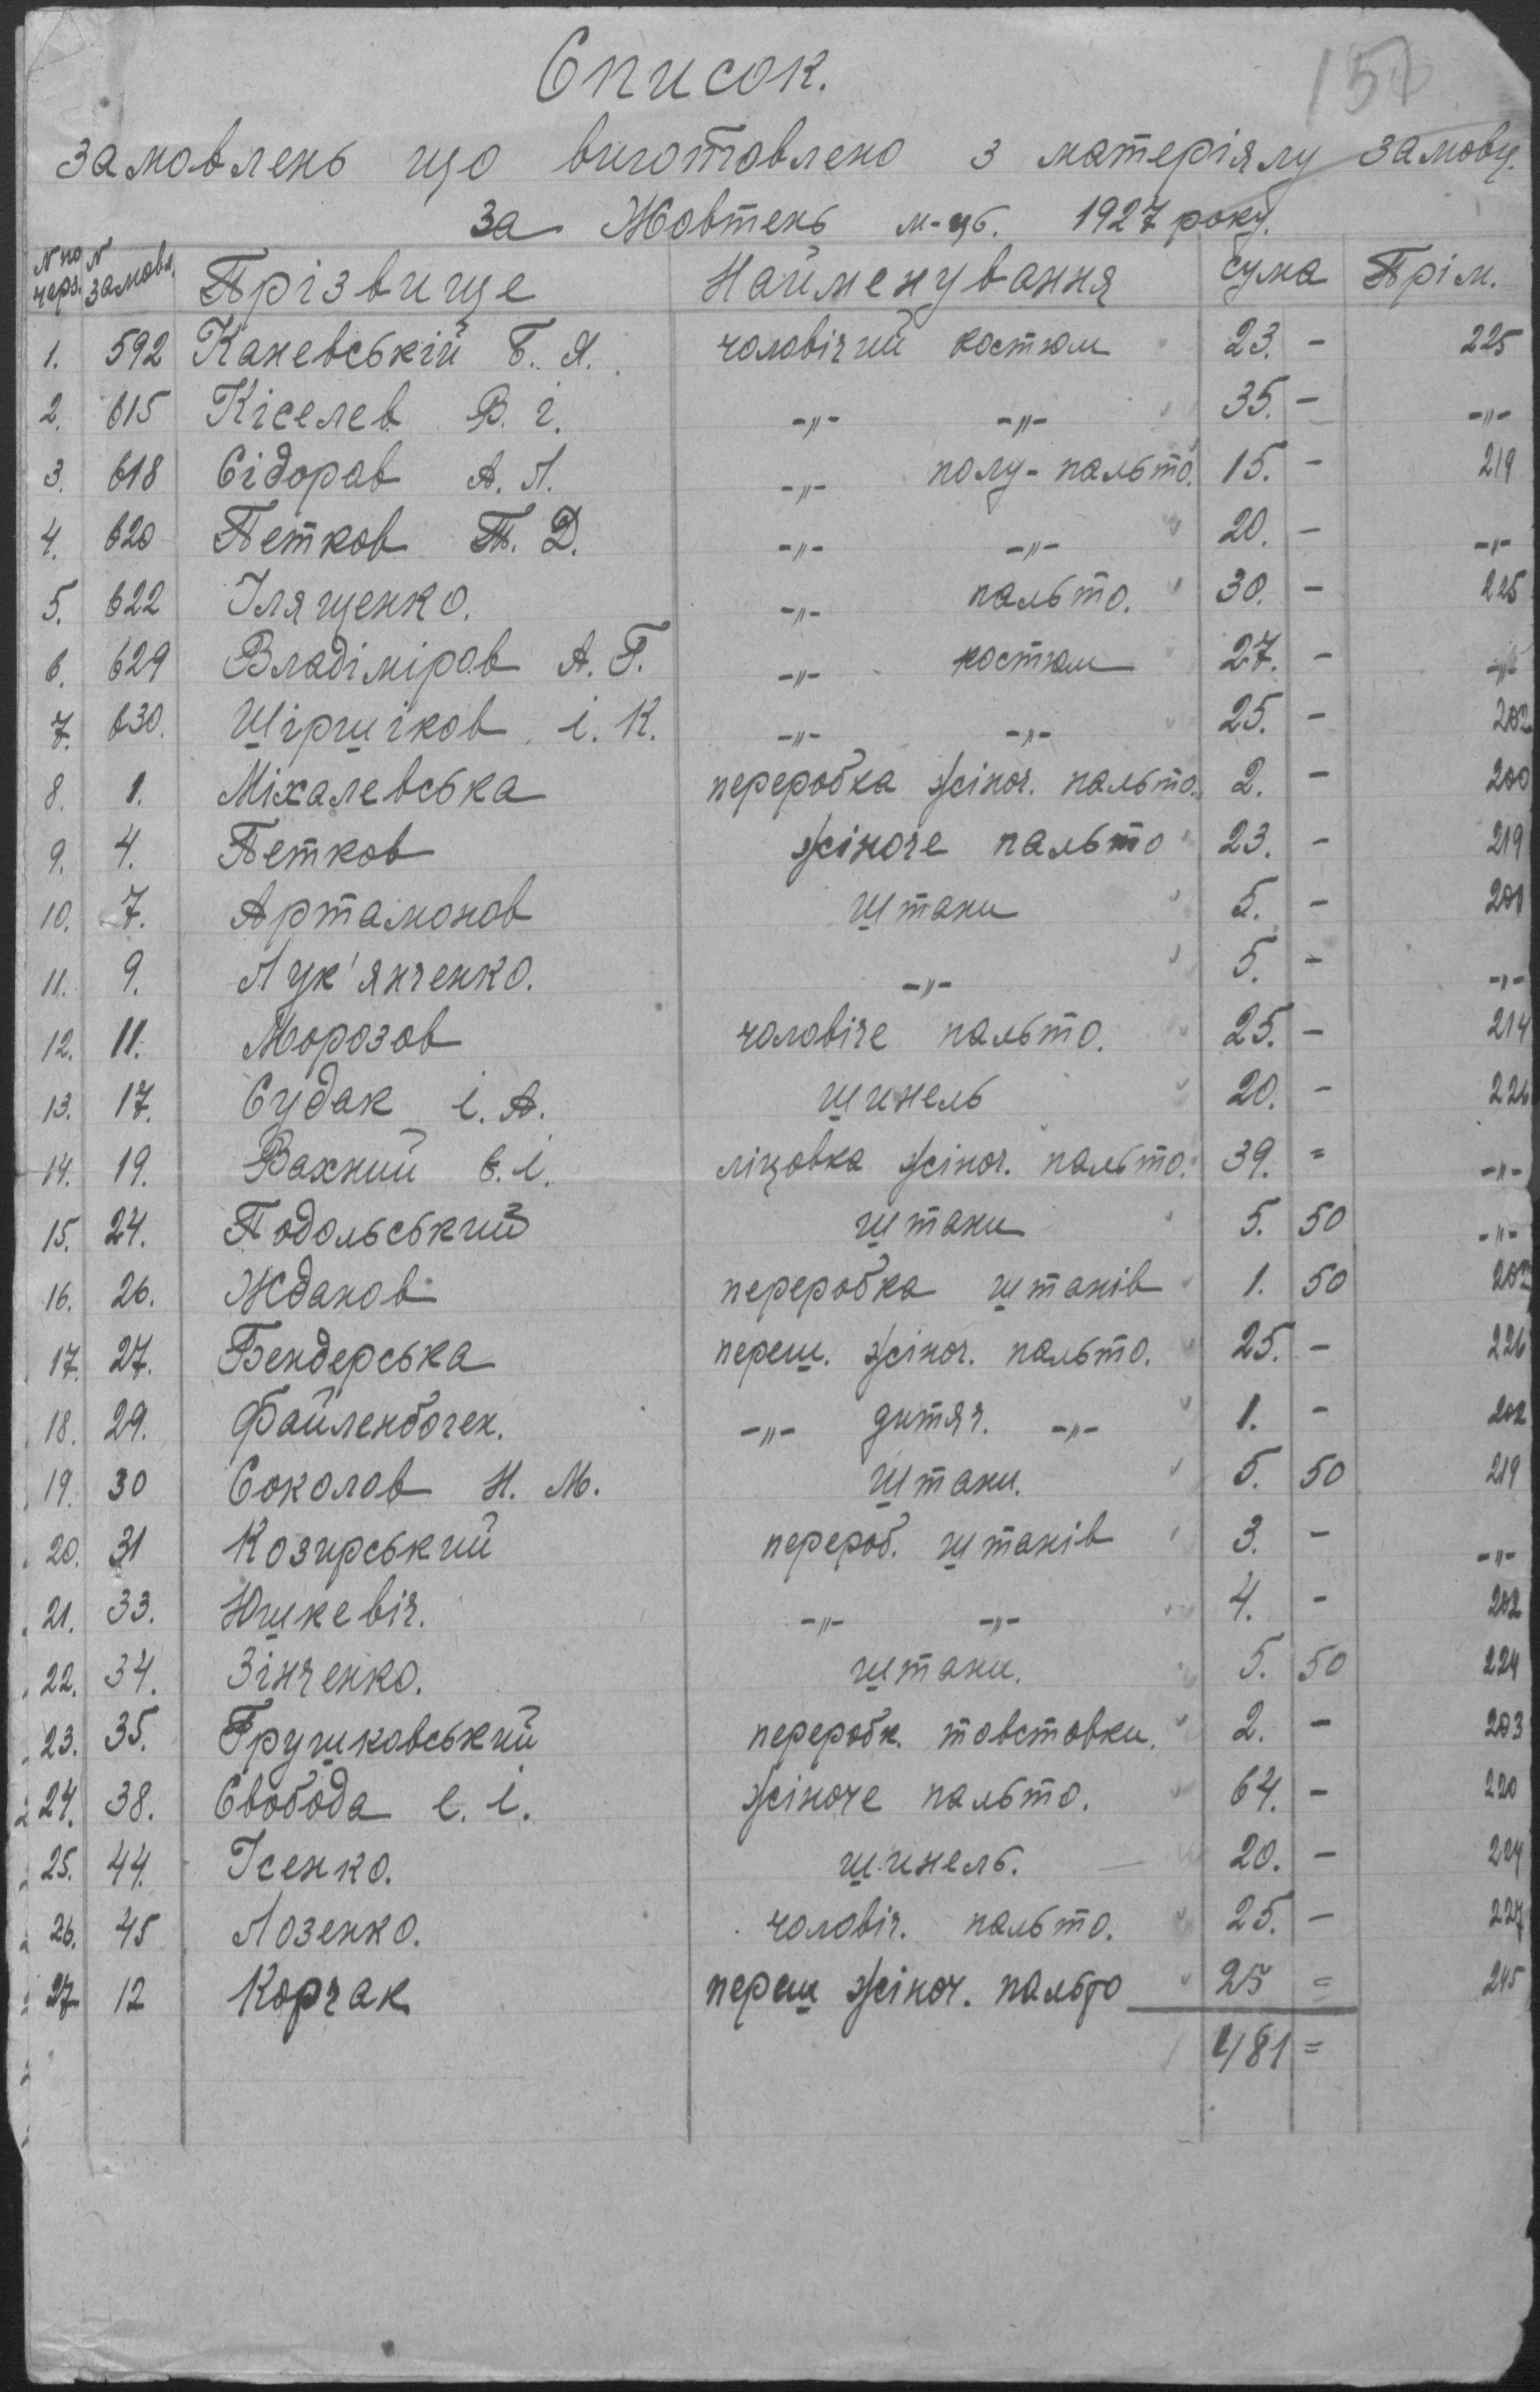 Список.
замовлень що виготовлено з матеріялу замовц.
за Жовтень м-ць. 1927 року.
N по черз. N замовл. Прізвище Найменування сума Прім.
1. 592 Каневській Б. Я. чоловічий костюм 23. - 225
2. 615 Кіселев В. і. -"- -"- 35. - -"-
3. 618 Сідоров А. Л. -"- полу-пальто. 15. - 219
4. 620 Петков П. Д. -"- -"- 20. - -"-
5. 622 Ілященко. -"- пальто. 30. - 225
6. 629 Владіміров А. Г. -"- костюм 27. - -"-
7. 630. Шіршіков і. К. -"- -"- 25. - 202
8. 1. Міхалевська переробка жіноч. пальто. 2. - 200
9. 4. Петков жіноче пальто 23. - 219
10. 7. Артамонов штани 5. - 201
11. 9. Лук'янченко. -"- 5. - -"-
12. 11. Морозов чоловіче пальто. 25. - 214
13. 17. Судак і. А. шинель 20. - 226
14. 19. Вахний Є. і. ліцовка жіноч. пальто. 39. = -"-
15. 24. Подольський штани 5. 50 -"-
16. 26. Жданов переробка штанів 1. 50 202
17. 27. Бендерська переш. жіноч. пальто. 25. - 226
18. 29. Файленбоген. -"- дитяч. -"- 1. - 202
19. 30 Соколов Н. М. штани. 5. 50 219
20. 31 Козирський перероб. штанів 3. - -"-
21. 33. Юшкевіч. -"- -"- 4. - 202
22. 34. Зінченко. штани. 5. 50 224
23. 35. Грушковський переробк. товстовки. 2. - 203
24. 38. Свобода Є. і. жіноче пальто. 64. - 220
25. 44. Ісенко. шинель. 20. - 224
26. 45 Лозенко. чоловіч. пальто. 25. - 227
27 12 Корчак переш жіноч. пальто 25 = 215
481 =